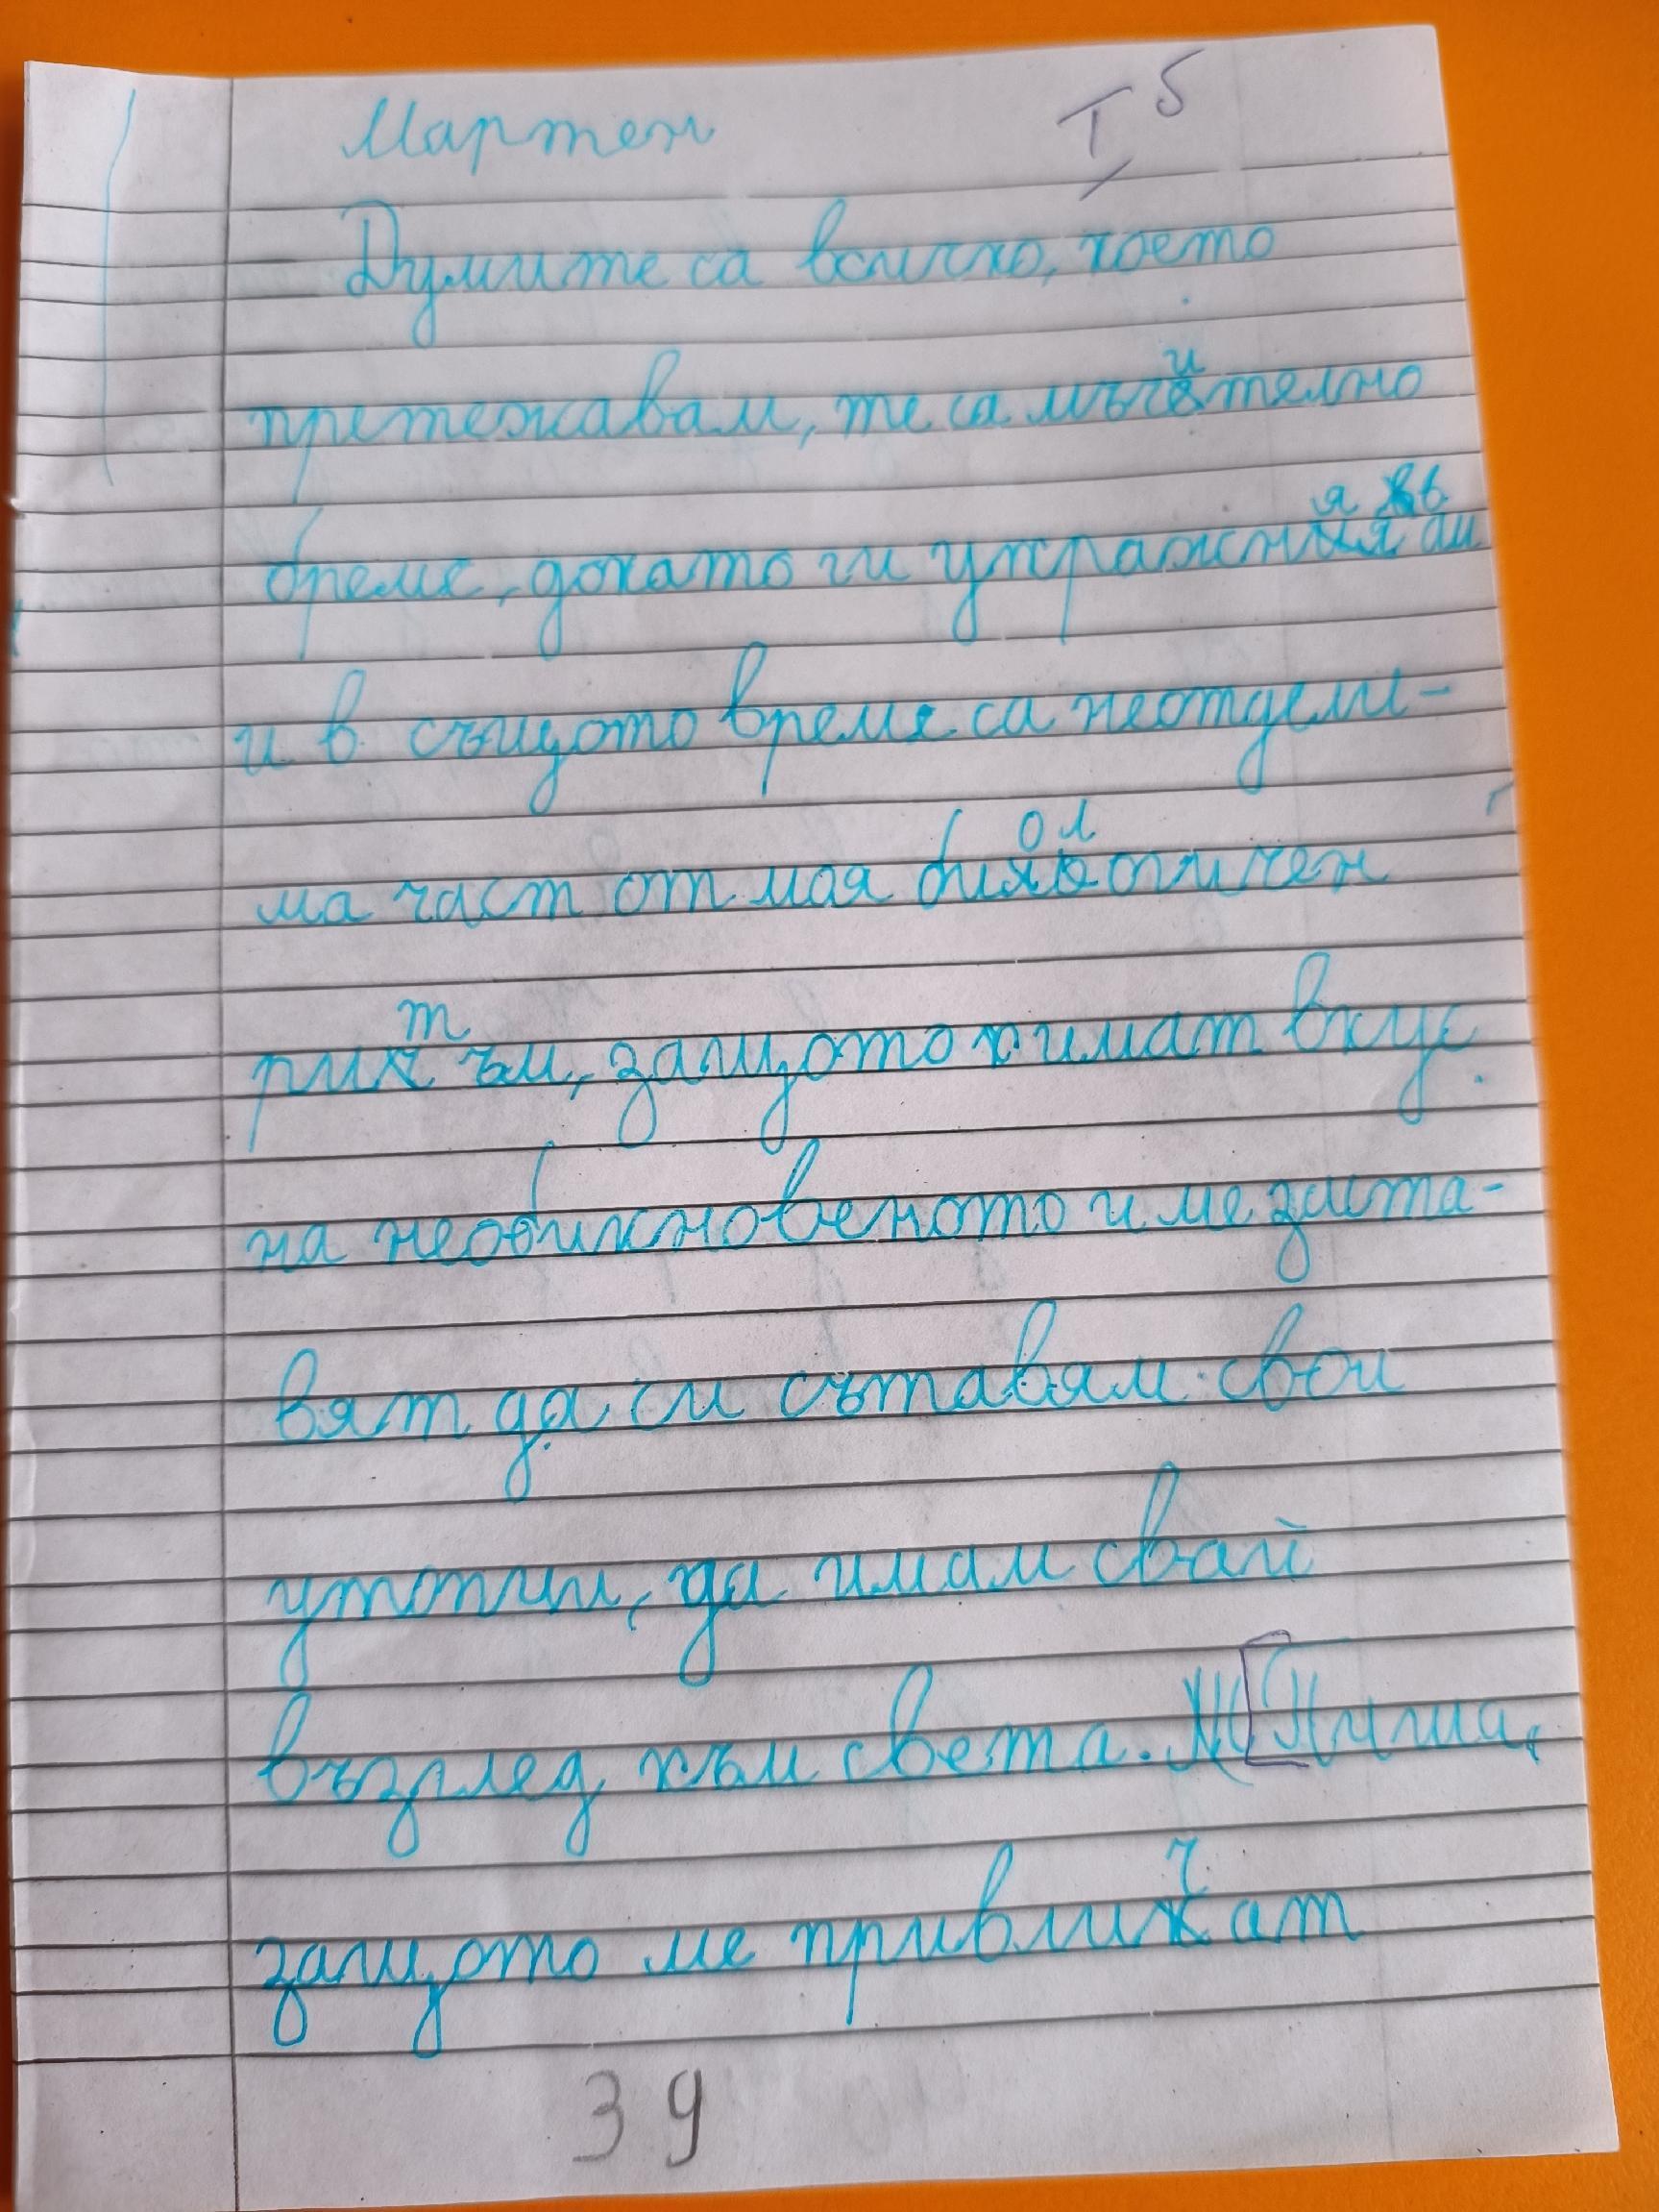 Мартен I б
Думите са всичко, което
претежавам, те са мъчително
бреме, докато ги упражнявам
и в същото време са неотдели-
ма част от моя биологичен
ритъм, защото имат вкус
на необикновеното и ме заста-
вят да си съставям свои
утопии, да имам свай
възглед към света. Пиша,
защото ме привличат
39